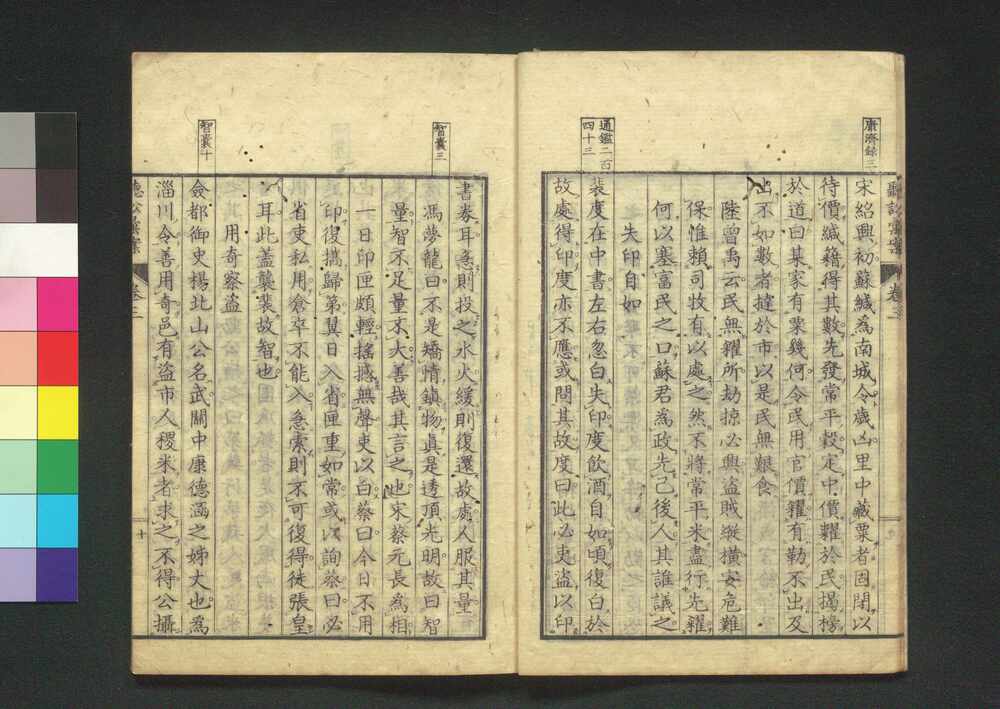 康濟録三
宋紹興初蘇緘為南城令歳凶里中藏粟者固閉以
待價緘籍得其數先發常平穀定中價糶於民揭榜
於道曰某家有粟幾何令民用官價糶有勒不出及
出不如數者撻於市以是民無艱食
陸曽禹云民無糴所劫掠必興盗賊縱横安危難
保惟賴司牧有以處之然不將常平米盡行先糶
何以塞富民之口蘇君為政先己後人其誰議之
失印自如
通鑑二百
四十三
裴度在中書左右忽白失印度飲酒自如頃復白於
故處得印度亦不應或問其故度曰此必吏盗以印
書券耳急則投之水火緩則復還故處人服其量
智囊三
馮夢龍曰不是矯情鎮物真是透頂光明故曰智
量智不足量不大善哉其言之也宋蔡元長為相
一日印匣頗輕搖撼無聲吏以白蔡曰今日不用
印復攜歸第翼日入省匣重如常或以詢蔡曰必
省吏私用倉卒不能入急索則不可復得徒張皇
耳此蓋襲裴故智也
用奇察盗
智囊十
僉都御史楊北山公名武關中康德涵之姊丈也為
淄川令善用奇邑有盗市人稷米者求之不得公攝
卷三
十